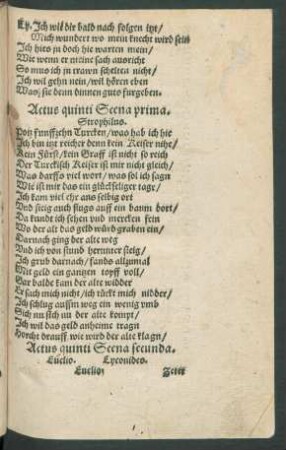 Ey. Ich wil dir bald nach folgen itzt/
Mich wundert wo mein knecht wird sein
Ich hies jn doch hie warten mein/
Wie wenn er meine sach ausricht
So mus ich jn trawn schelten nicht/
Ich wil gehn nein/ wil hören eben
Was sie denn dinnen guts furgeben.
Actus quinti Scena prima.
Strophilus.
Potz funffzehn Turcken/ was hab ich hie
Ich bin itzt reicher denn kein Keiser nihe/
Kein Fürst/ kein Graff ist nicht so reich
Der Turckisch Keiser ist mir nicht gleich/
Was darffs viel wort/ was sol ich sagn
Wie ist mir das ein glückseliger tage/
Ich kam viel ehr ans selbig ort
Vnd steig auch flugs auff ein baum dort/
Da kundt ich sehen vnd mercken fein
Wo der alt das geld würd graben ein/
Darnach ging der alte weg
Vnd ich von stund herunter steig/
Ich grub darnach/ fands allzumal
Mit geld ein gantzen topff voll/
Gar balde kam der alte widder
Er sach mich nicht/ ich rückt mich nidder/
Ich schlug aussm weg ein wenig vmb
Sich nu sich nu der alte kompt/
Ich wil das geld anheime tragn
Horcht drauff wie wird der alte klagn/
Actus quinti Scena secunda.
Euclio. Lyconides.
Euclio. Zeter